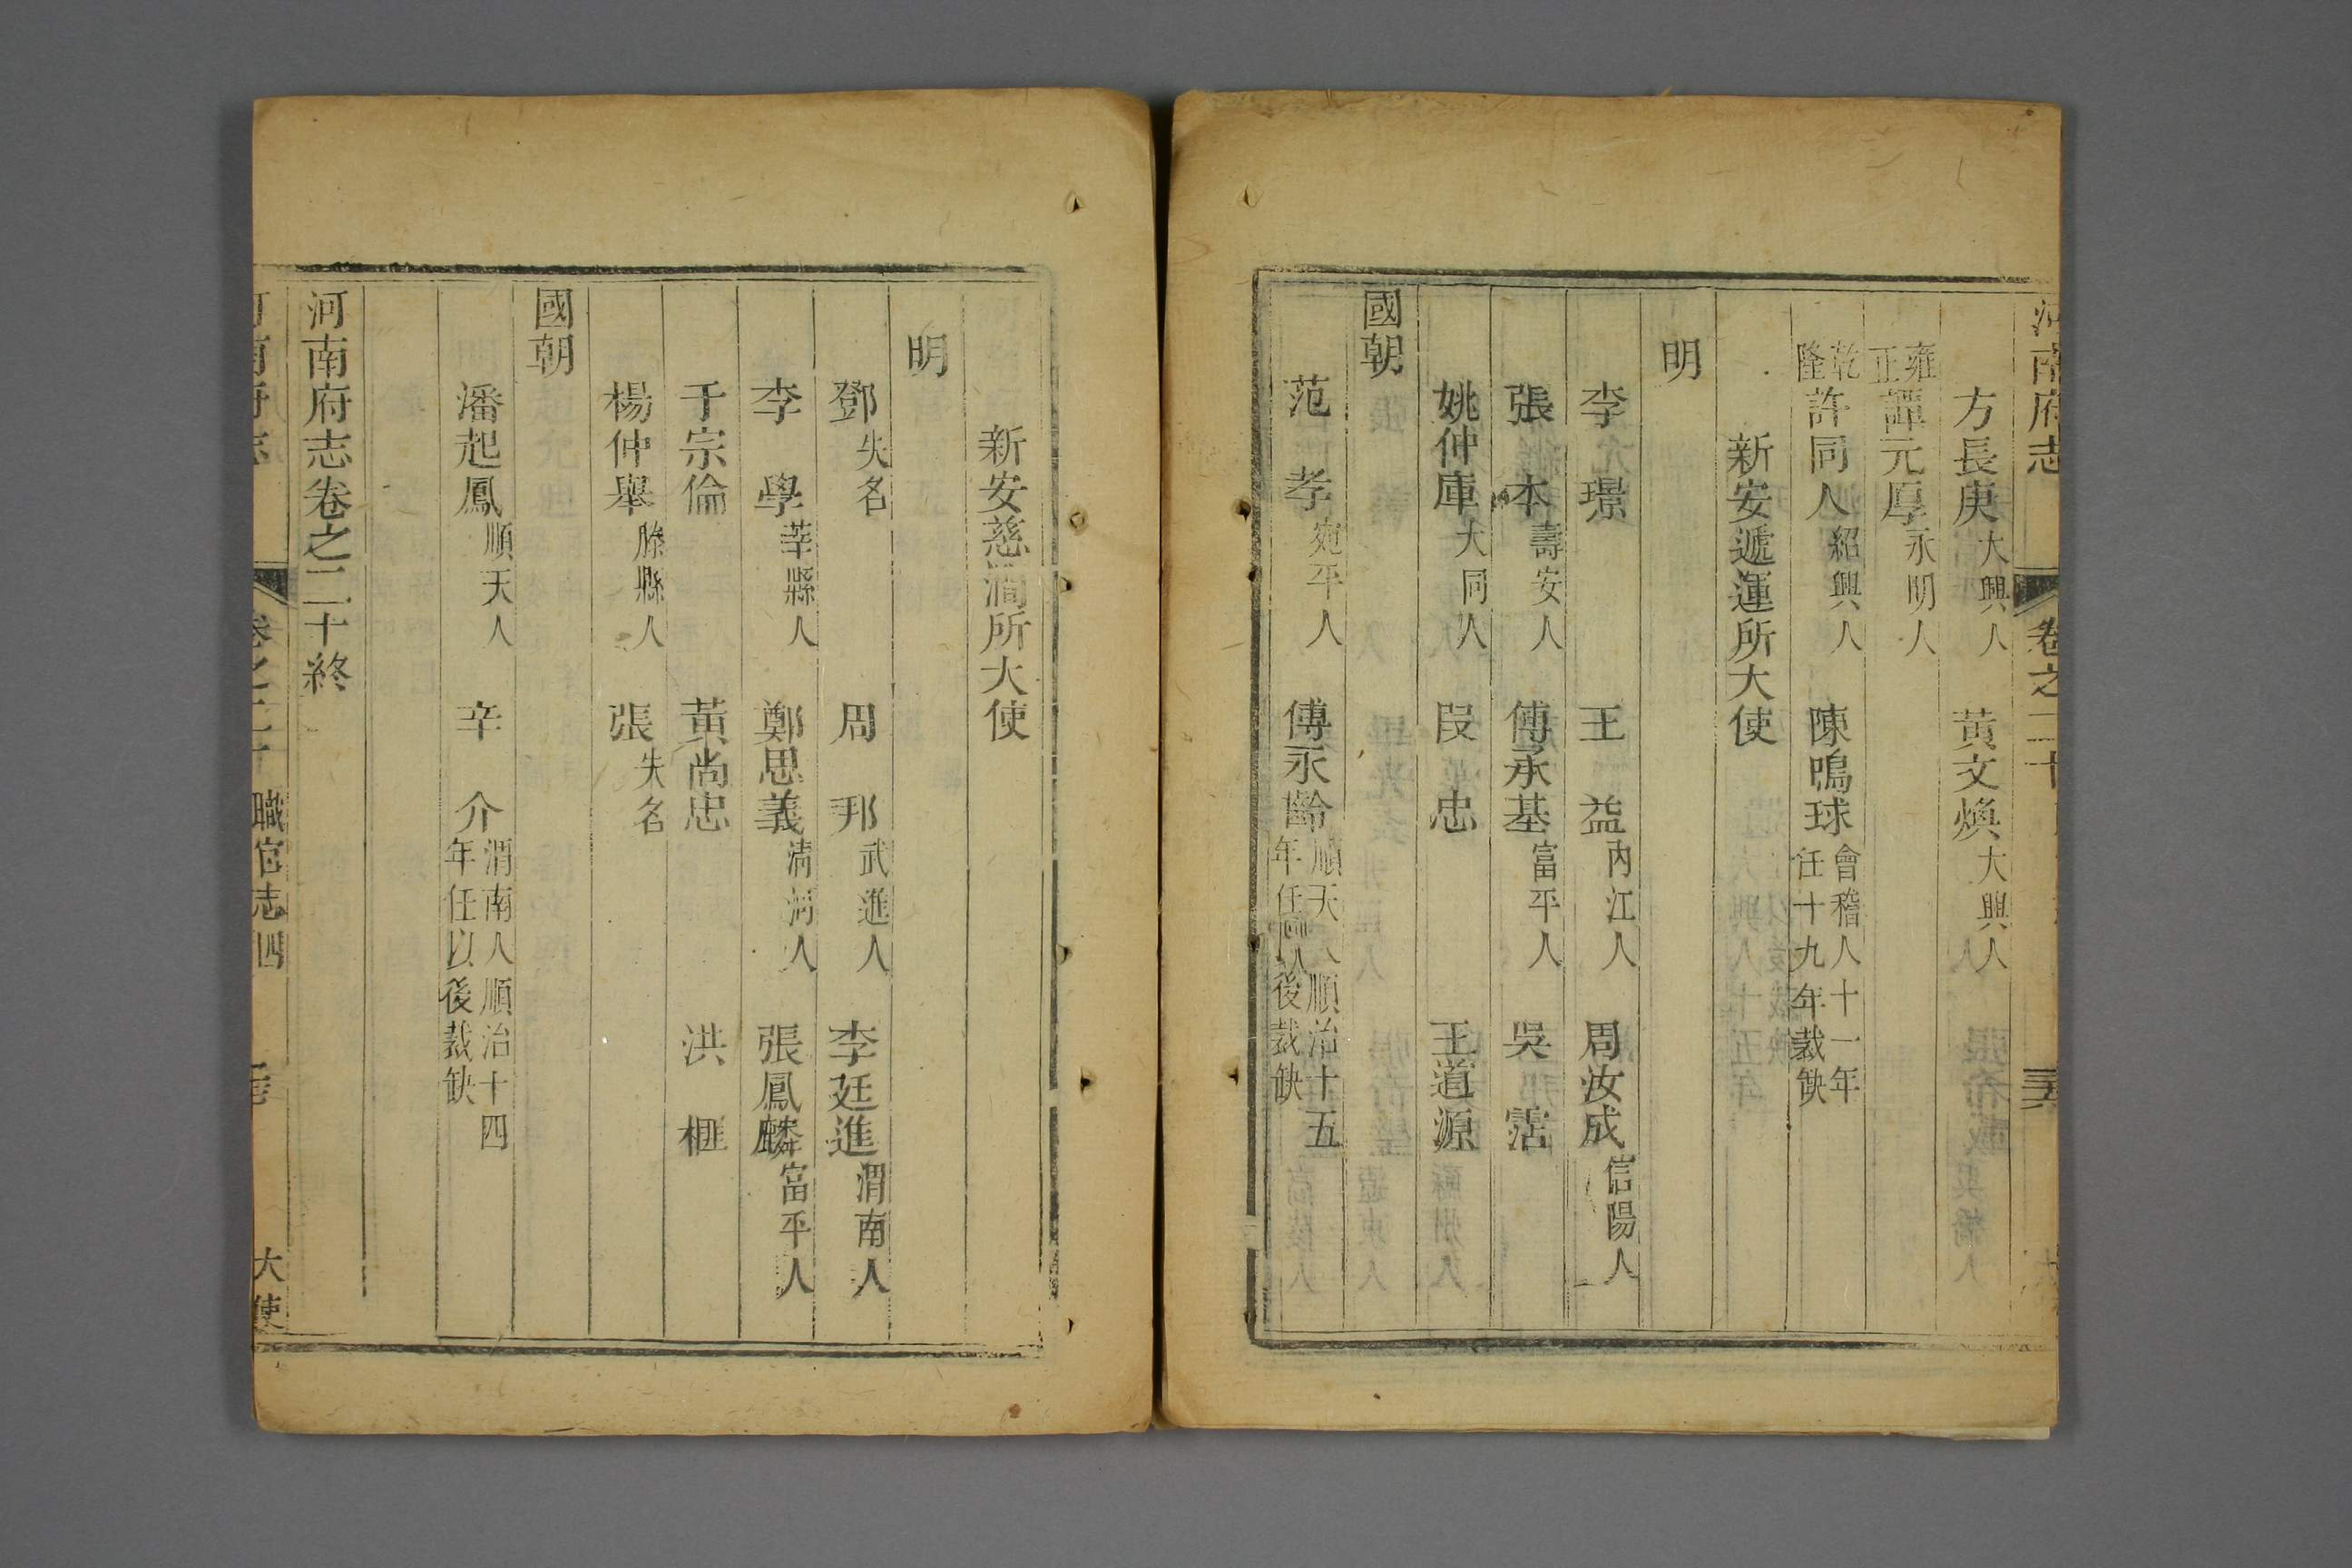 河南府志 卷之二十
方長庚大興人 黃文煥大興人
雍正譚元厚永明人
乾隆許同人紹興人 陳鳴球會稽人十一年任十九年裁缺
新安遞運所大使
明
李 璟 王 益內江人 周汝成信陽人
張 本壽安人 傅承基富平人 吳 霑
姚仲庫大同人 段 忠 王道源
國朝
范 孝宛平人 傅永齡順天人順治十五年任 後裁缺
新安慈澗所大使
明
鄧失名 周 邦武進人 李廷進渭南人
李 學莘縣人 鄭思義清澗人 張鳳麟富平人
千宗倫 黃尚忠 洪 榧
楊仲舉滕縣人 張失名
國朝
潘起鳳順天人 辛 介渭南人順治十四年任以後裁缺
河南府志卷之二十終
河南府志 卷之二十 職官志四 大使